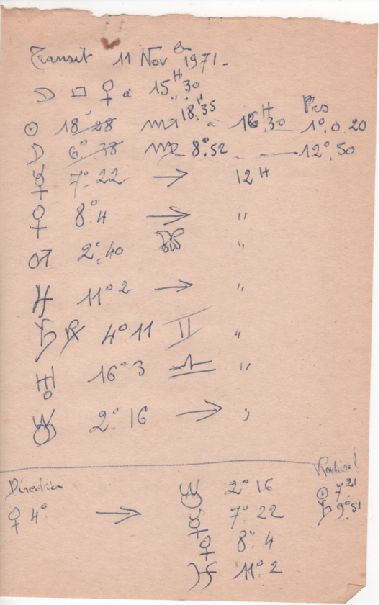 Transit 11 Nov bre 1971.
☽ □ ♀ a 15H.30
☉ 18°28 ♏ 18.35 - 16H.30 1°.0.20
☽ 6°38 ♍ 8°.52 - 12°.50
☿ 7°.22 → 12H
♀ 8°.4 → "
♂ 2°.40 "
♃ 11°2 → "
♄ ℞ 4°11 ♊ "
♅ 16°3 ♎ "
2°.16 → "
♀ 4° → 2°16
☿ 7°.22
♀ 8°.4
♃ 11°.2
Radical
☉ 7°21
♄ 9°.51